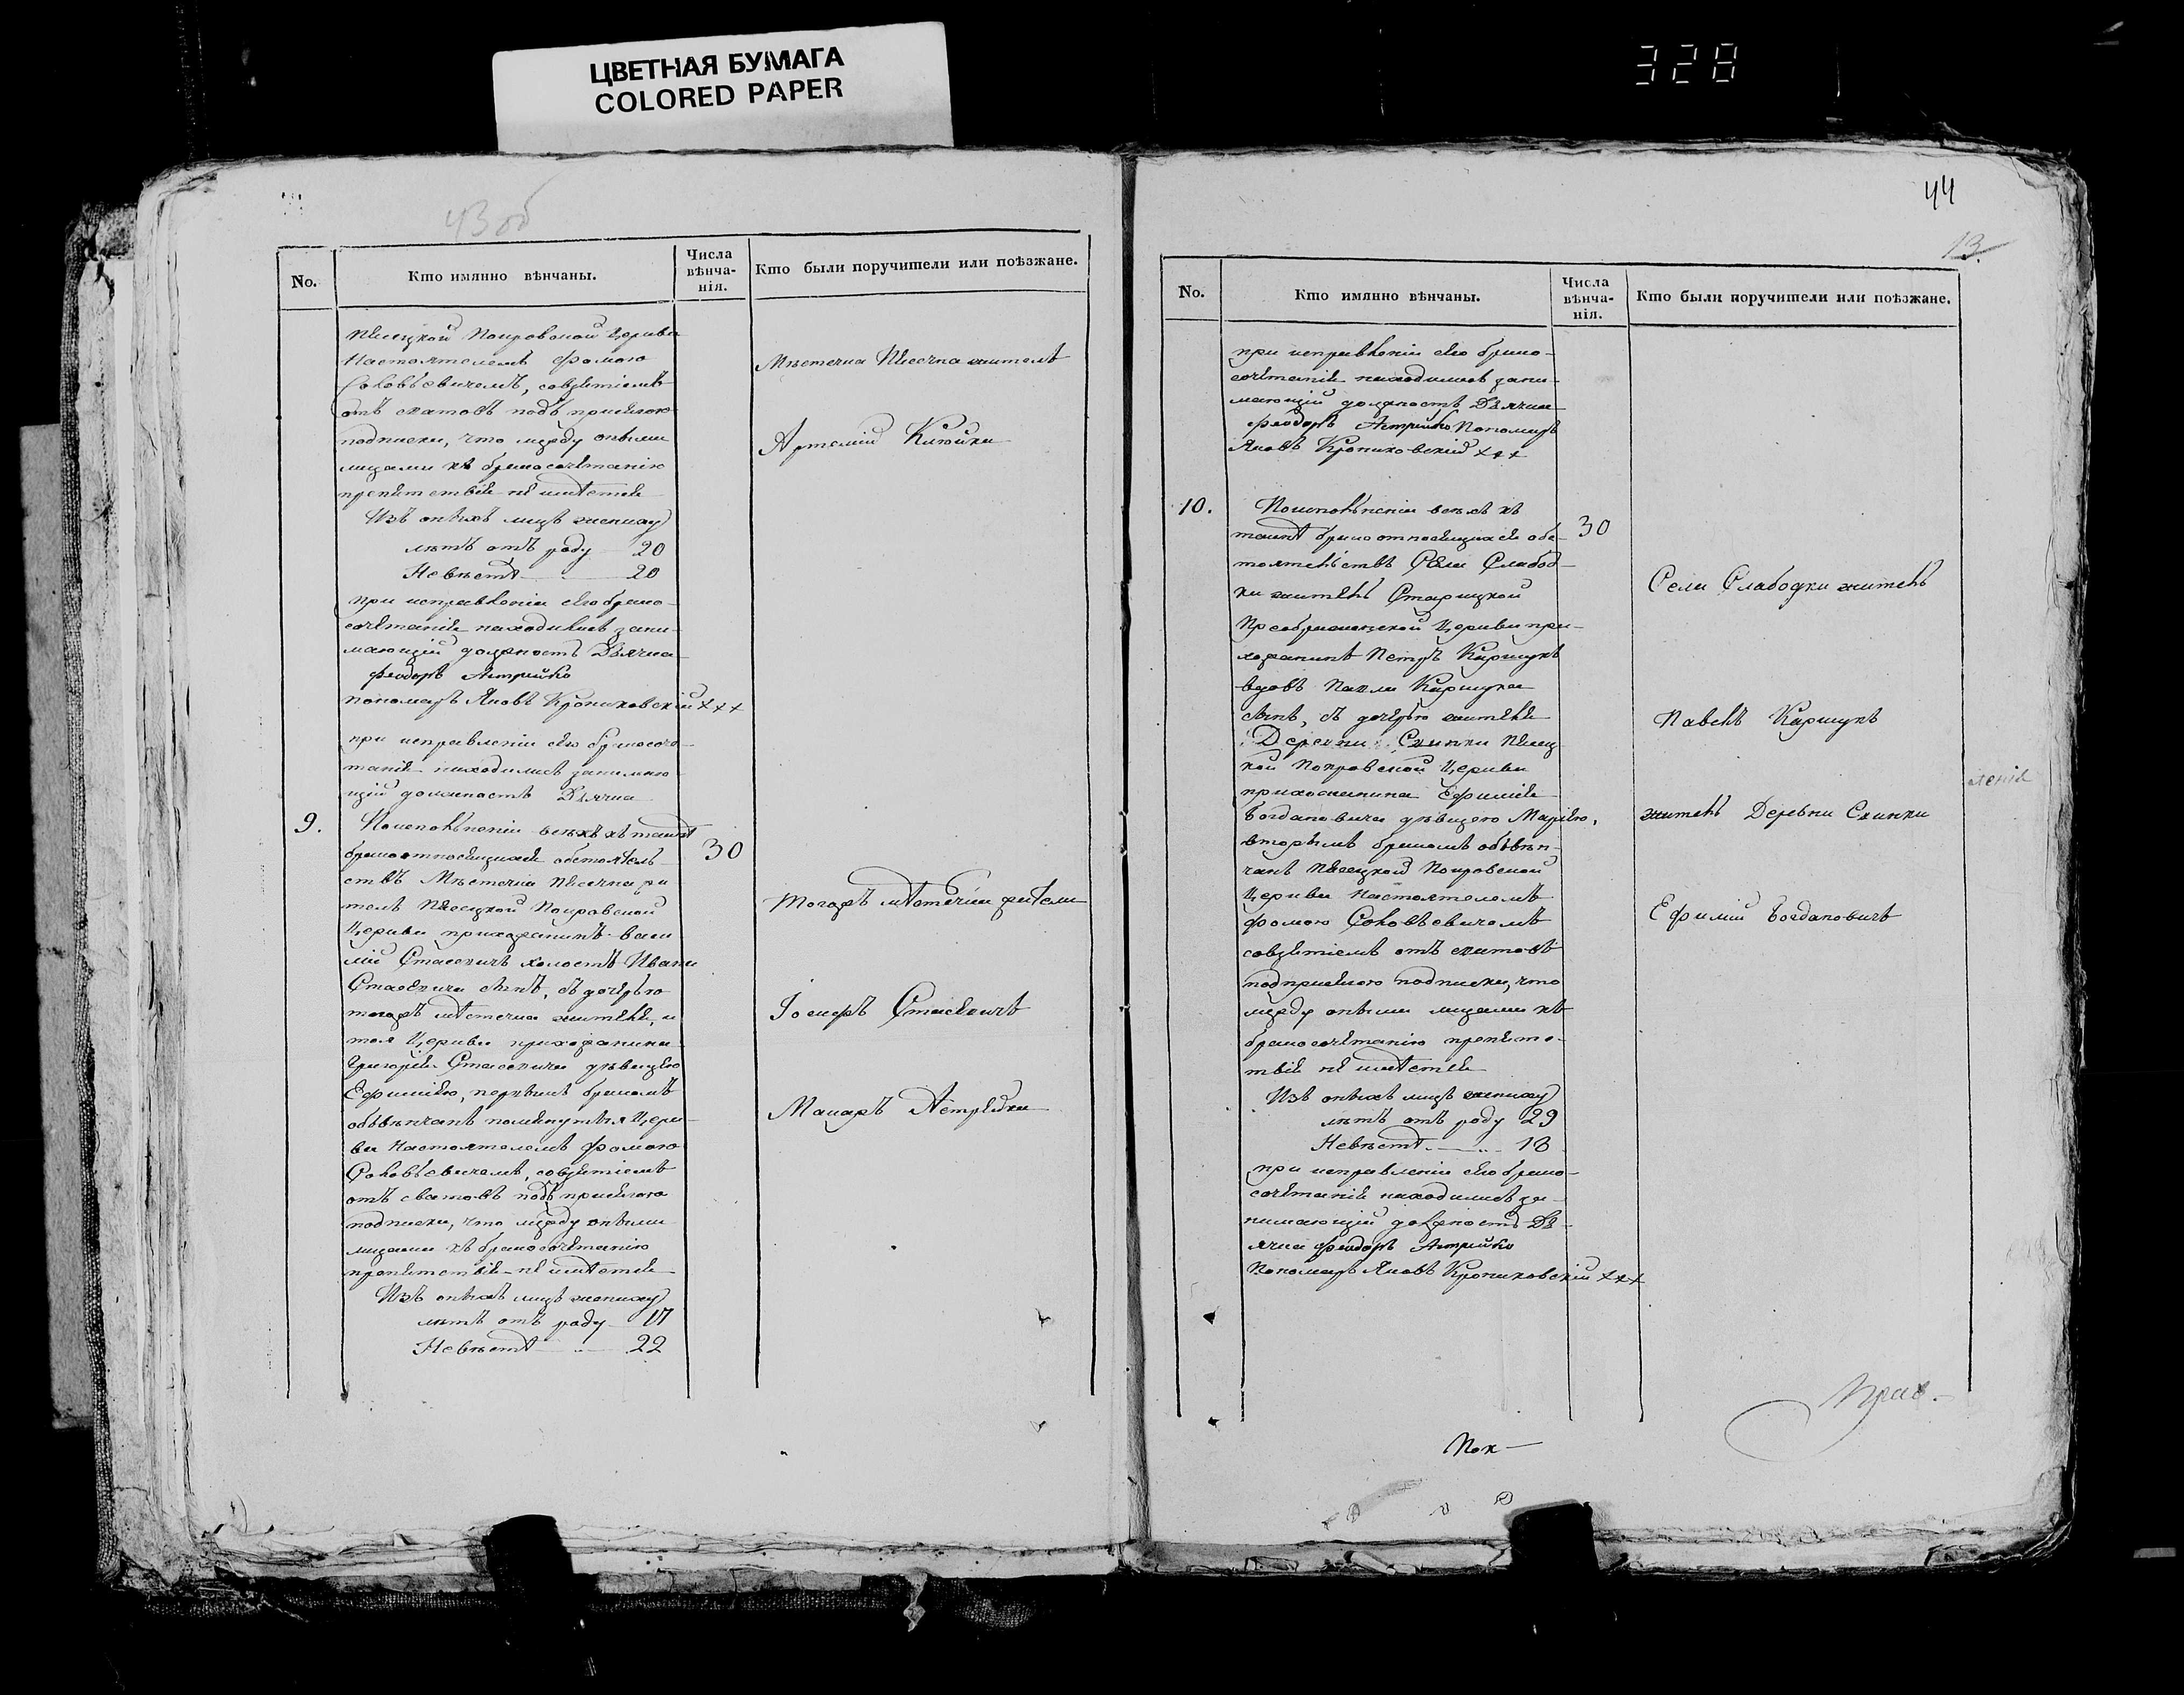 ЦВЕТНАЯ БУМАГА
COLORED PAPER
328
43 об
No.
Кто имянно вѣнчаны.
Числа
вѣнча-
нія.
Кто были поручители или поѣзжане.
Песецкой Покровской Церкви
Настоятелемъ Фомою
Соловьевичемъ, совзятіемъ
отъ сватовъ подъ присягою
подписки, что между оными
лицами къ бракосочетанію
препятствія не имѣется
Изъ оныхъ лицъ жениху
лѣтъ отъ роду 20
Невѣстѣ 20
при исправленіи сего брако-
сочетанія находились зани-
мающій должность Дьячка
Феодоръ Астрейко
пономарь Яковъ Крониковскій +++
при исправленіи сего бракосоче-
танія находились занимаю-
щій должность Дьячка
Мѣстечка Песечна житель
Артемій
9.
По исполненіи всѣхъ къ таинѣ
брака относящихся обстоятель-
ствъ Мѣстечка Песечна жи
тель Песецкой Покровской
Церкви прихожанинъ Васи
лій Стасевичъ холостъ Ивана
Стасевича сынъ, съ дочерью
тогожъ мѣстечка жителя, и
тоя Церкви прихожанина
Григорія Стасевича дѣвицею
Ефимією, первымъ бракомъ
обвѣнчанъ помянутыя Церк-
ви Настоятелемъ Фомою
Соловьевичемъ, совзятіемъ
отъ сватовъ подъ присягою
подписки, что между оными
лицами къ бракосочетанію
препятствія не имѣется
Изъ оныхъ лицъ жениху
лѣтъ отъ роду 17
Невѣстѣ 22
30
Тогожъ мѣстечка жители
Іосифъ Стасевичъ
Макаръ Астрейка
44
13.
No.
Кто имянно вѣнчаны.
Числа
вѣнча-
нія.
Кто были поручители или поѣзжане.
при исправленіи сего брако-
сочетанія находились зани-
мающій должность Дьячка
Феодоръ Астрейко Пономарь
Яковъ Крониковскій +++
10.
По исполненіи всѣхъ къ
таинѣ брака относящихся обс-
тоятельствъ Села Слабод-
ки житель Старицкой
Преображенской Церкви при-
хожанинъ Петръ Каршукъ
вдовъ Павла Каршука
сынъ, съ дочерью жителя
Деревни Скинки Песец
кой Покровской Церкви
прихожанина Ефимія
Богдановича дѣвицею Марією,
вторымъ бракомъ обвѣн-
чанъ Песецкой Покровской
Церкви Настоятелемъ
Фомою Соловьевичемъ
совзятіемъ отъ сватовъ
подприсягою подписки, что
между оными лицами къ
бракосочетанію препятс-
твія не имѣется
Изъ оныхъ лицъ жениху
лѣтъ отъ роду 29
Невѣстѣ 18
при исправленіи сего брако-
сочетанія находились за-
нимающій должность Дь-
ячка Феодоръ Астрейко
Пономарь Яковъ Крониковскій +++
30
Села Слабодки житель
Павелъ Каршукъ
житель Деревни Скинки
Ефимій Богдановичъ